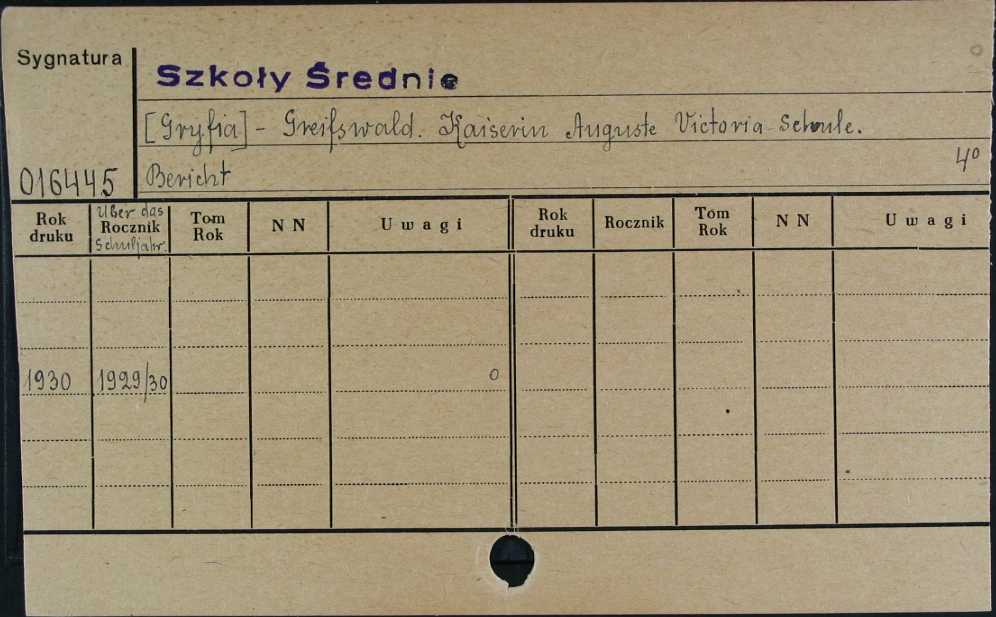 Sygnatura
Szkoły Średnie
[Gryfia] - Greifswald. Kaiserin Auguste Victoria-Schule.
016445 Bericht 4°
Rok druku Über das Rocznik Schuljahr. Tom Rok NN Uwagi Rok druku Rocznik Tom Rok NN Uwagi
1930 1929/30 0